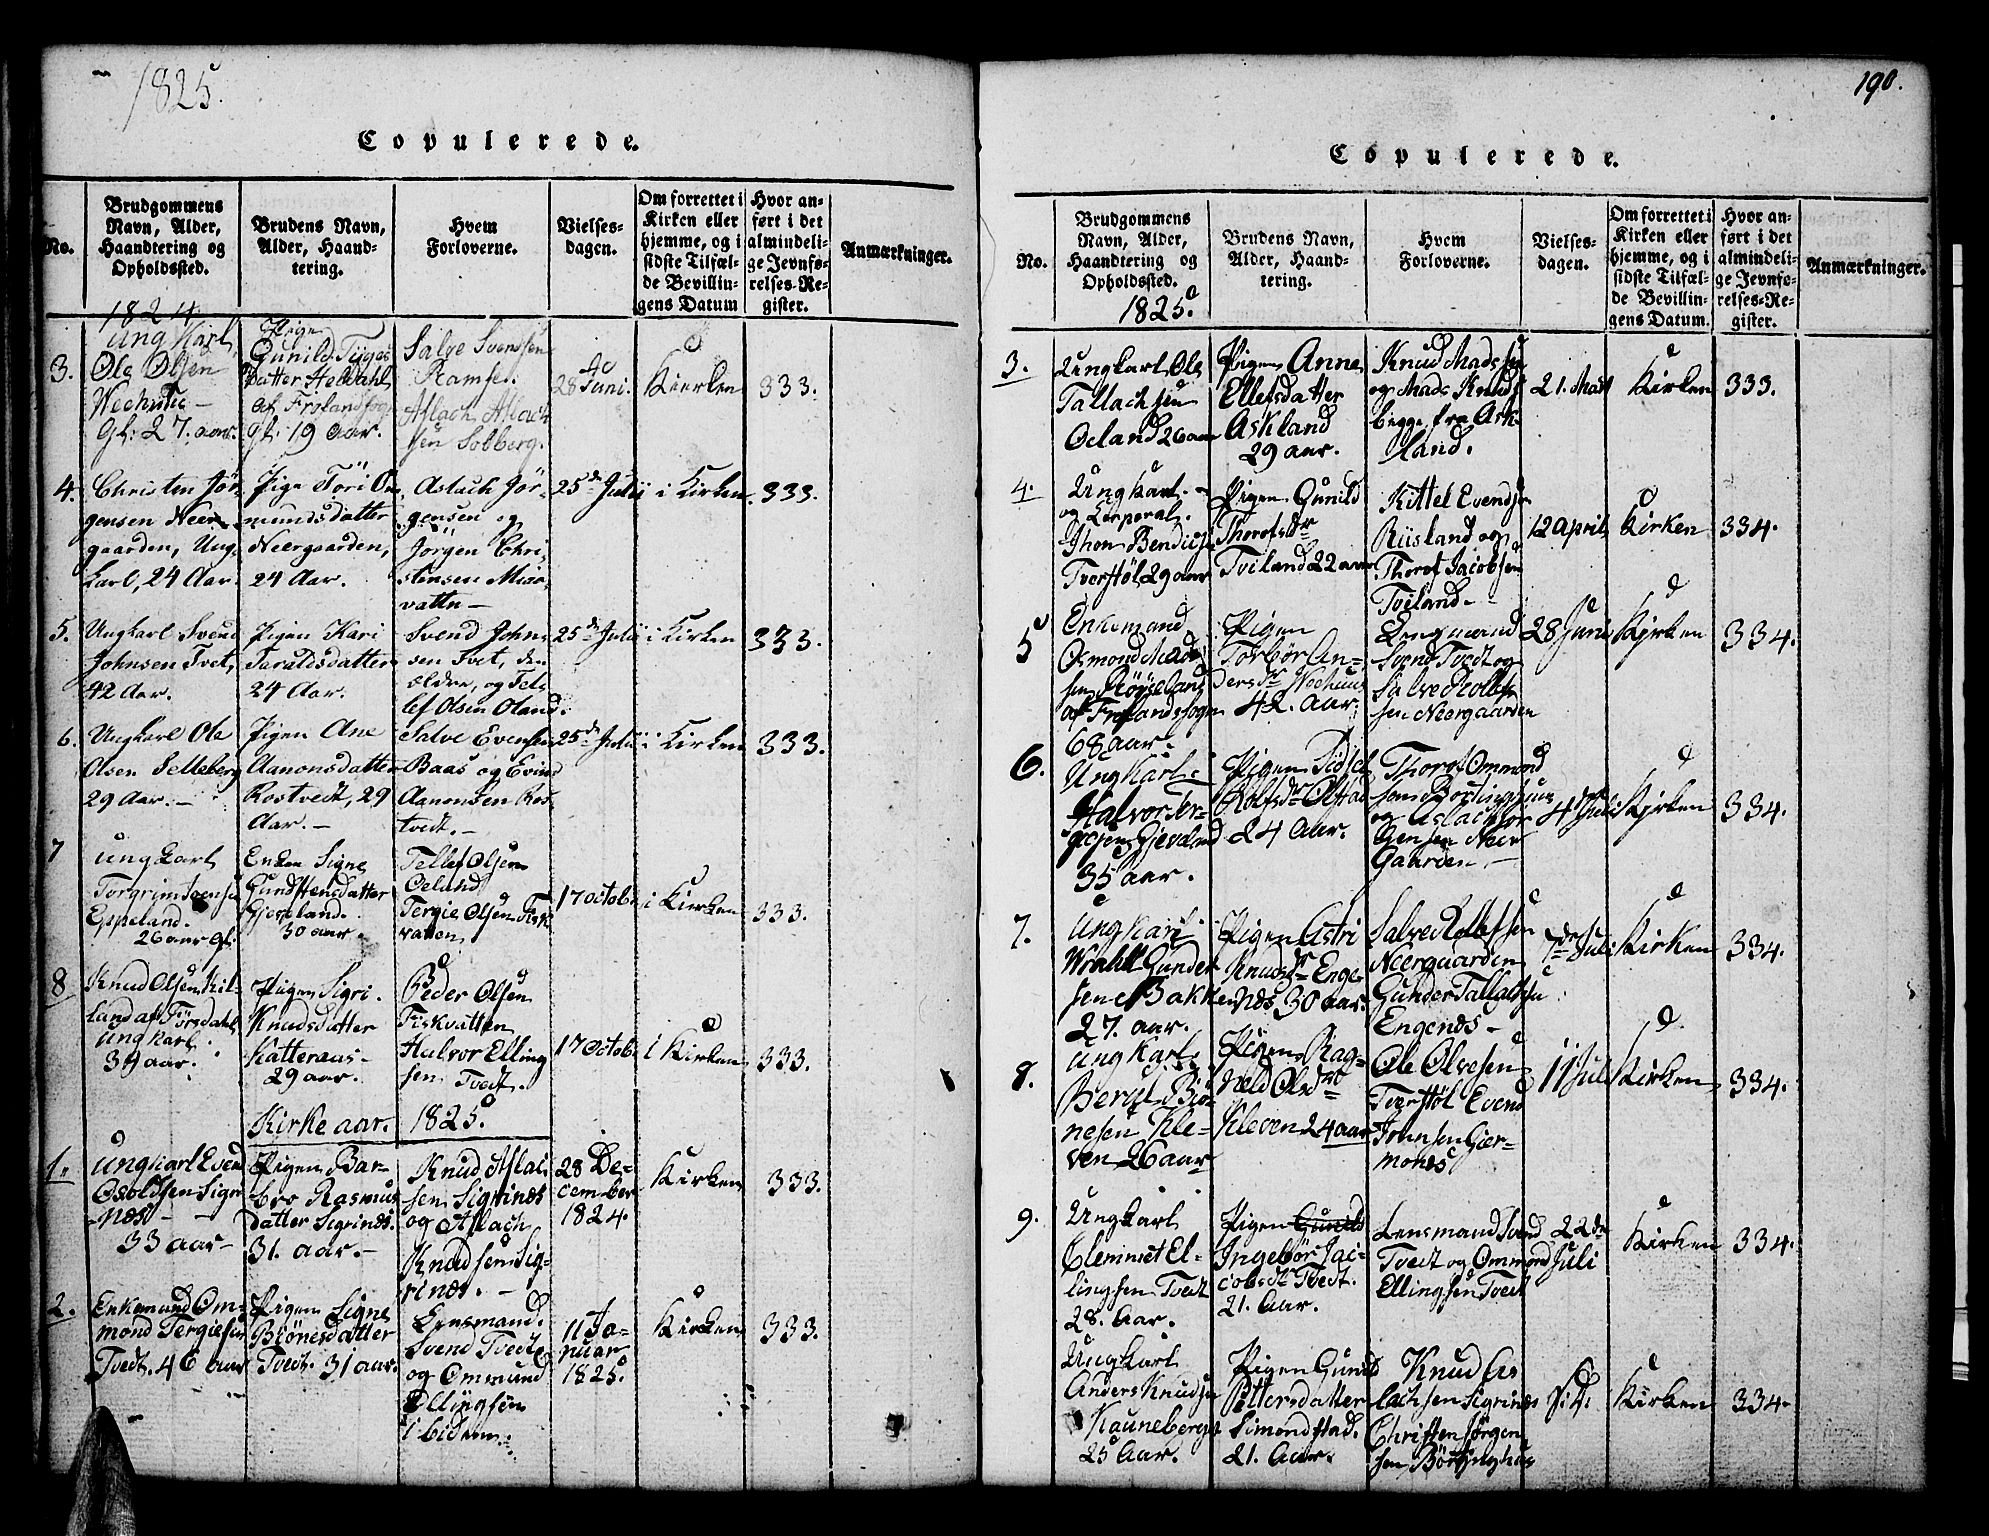 1825.
Copulerede.
No.
Brudgommens
Navn, Alder,
Haandtering og
Opholdssted.
Brudens Navn,
Alder, Haand-
tering.
Hvem
Forloverne.
Vielses-
dagen.
Om forrettet i
Kirken eller
hjemme, og i
sidste Tilfæl-
de Bevillin-
gens Datum
Hvor an-
ført i det
almindeli-
ge Jevnfø-
relses-Re-
gister.
Anmærkninger.
1824
3.
Ung Karl
Ole Olsen
Gl: 27. aar.
Pige
Gunild Tijges
datter Heldahl
af Frolandsogn
gl: 19 aar.
Salve Svensen
Ramse.
Aslach Aslach
sen Solberg.
28 Juni.
Kierken
333.
4.
Christen Jør-
gensen Neer-
gaarden, Ung-
karl, 24 Aar
Pige Töri Om-
mundsdatter
Neergaarden,
24 Aar.
Aslach Jör-
gensen og
Jörgen Chri-
stensen Miaa-
vattn –
25de Julii
i Kirken
333.
5.
Ungkarl Svend
Johnsen Tvet,
42 Aar.
Pigen Kari
Taraldsdatter
24 Aar.
Svend John-
sen Tvet, den
ældre, og Tel-
lef Olsen Oland.
25de Julii
i Kirken
333.
6.
Ungkarl Ole
Olsen Selleberg
29 Aar. –
Pigen Ane
Aanonsdatter
Rostvedt, 29
Aar. –
Salve Evensen
Baas og Evind
Aanonsen Ros-
tvedt. –
25de Julii
i Kirken
333.
7
ungkarl
Torgrim
Eppeland.
26 aar gl:
Enken Signe
Gundstensdatter
Gjeveland.
30 aar.
Tellef Olsen
Oeland
Tergie Olsen Fisk
vatten
17 octobr
i Kirken
333.
8
Knud Olsen Kil-
land af Försdahl
ungkarl.
34 aar.
Pigen Sigri.
Knudsdatter
Katteraas –
29 aar.
Peder Olsen
Fiskvatten
Halvor Elling
sen Tvedt.
17 Octobr
i Kirken
333.
Kirke aar. 1825.
1.
ungkarl Evend
Osoldsen Sigri
næs –
33 aar –
Pigen Bar-
bro Rasmus
datter Sigrinæs.
31. aar. –
Knud Aslac
sen Sigrinæs
og Aslach
Knudsen Sig-
rinæs. –
28 De-
cember
1824.
Kirken
333.
2.
Enkemand Om-
mond Tergiesen
Tvedt. 46 aar
Pigen Signe
Biönesdatter
Tvedt. 31 aar.
Lensmand.
Svend Tvedt
og Ommund
Ellingsen
ibidem.
11 Ja-
nuar
1825.
Kirken
333.
190.
Copulerede.
No.
Brudgommens
Navn, Alder,
Haandtering og
Opholdssted.
Brudens Navn,
Alder, Haand-
tering.
Hvem
Forloverne.
Vielses-
dagen.
Om forrettet i
Kirken eller
hjemme, og i
sidste Tilfæl-
de Bevillin-
gens Datum.
Hvor an-
ført i det
almindeli-
ge Jevnfø-
relses-Re-
gister.
Anmærkninger.
1825.
3.
Ungkarl Ole
Tallachsen
Oeland 26 aar
Pigen Anne
Ellefsdatter
Askland
29 aar.
Knud Madssen
og Mads Knuds
begge fra Ask-
land.
21. Mart
Kirken
333.
4.
Ungkarl. –
og Corporal.
Thon Bendixsen
Tverstöl 29 aar
Pigen Gunild
Thorofsdr
Tviland 22 aar
Kittel Evends
Riisland og
Thorof Jacobsen
Tviland –
12 April
Kirken
334.
5
Enkemand
Osmond Mads
sen Röiseland
af Frolandssogn
68 aar.
Pigen
Torbör An-
dersdr Wehuus
42. aar.
Lensmand
Svend Tvedt og
Salve Rollef
sen Neergaarden
28 Juni
Kjrken
334.
6.
Ungkarl.
Halvor Jør-
gesen Gjeveland
35 aar.
Pigen Sidsel
Rolfsdr Olstad
24 Aar.
Thorof Ommond
sen Bortinghuus
og Aslach Jör
gensen Neer
Gaarden –
4de Juli
Kjrken
334.
7.
ungkarl
Gunder
sen Bakke
27. aar.
Pigen Astri
Knudsdr Enge-
næs 30 aar.
Salve Rollefsen
Neergaarden
Gunder Tallachsen
Engenæs –
7de Juli
Kirken
334.
8.
ungkarl
Bernt Biö-
nesen Kle-
ven 26 aar
Pigen Rag-
nild Olsdr
Kleven 24 aar
Ole Olvesen
Tverstöl Evend
Johnsen Gier-
monæs
11 Juli
Kirken
334.
9.
Ungkarl
Clemmet El-
lingsen Tvedt
28. Aar.
Pigen Gunild
Ingebör Jac-
cobsdr Tvedt.
21. Aar.
Lensmand Svend
Tvedt og Ommond
Ellingsen Tvedt
22de
Juli
Kirken
334.
Ungkarl
Anders Knudsen
Rauneberg
25 Aar.
Pigen Gunild
Pettersdatter
Simonstad.
21. Aar.
Knud As
lachsen Sigrinæs
Christen Jörgen
sen Börtinghus
s. d.
Kirken
334.